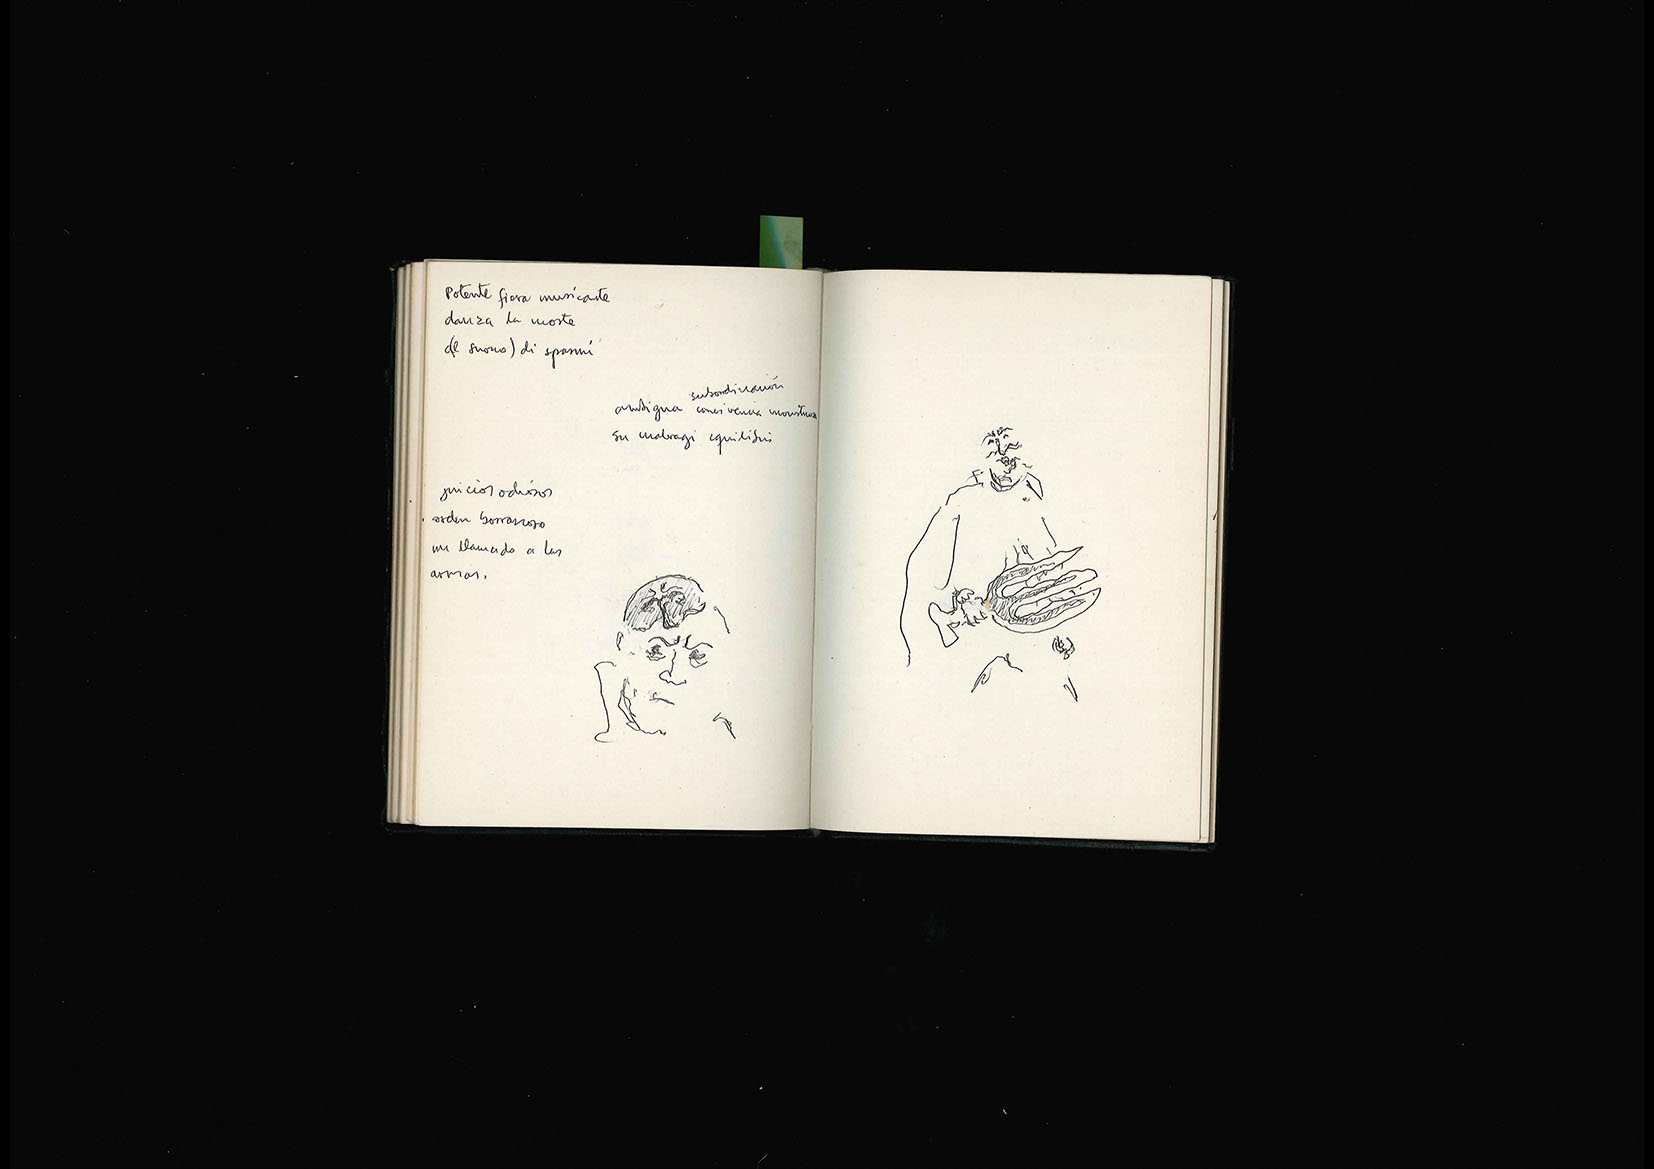 Potente fiera musicante
danza la morte
(l suono) di spasmi
subordinación
ambigua convivencia monstruosa
su malvagi equilibri
juicios odiosos
orden borrascoso
un llamado a las
armas.